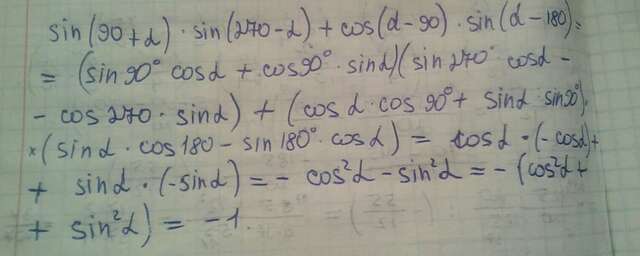 sin(90+α)·sin(270-α)+cos(α-90)·sin(α-180)=
= (sin90° cosα + cos90°·sinα)(sin270° cosα -
- cos270·sinα) + (cosα·cos90°+ sinα sin90°)·
×(sinα·cos180 - sin180°·cosα) = cosα·(-cosα)+
+ sinα·(-sinα) = - cos²α - sin²α = - (cos²α +
+ sin²α) = -1.